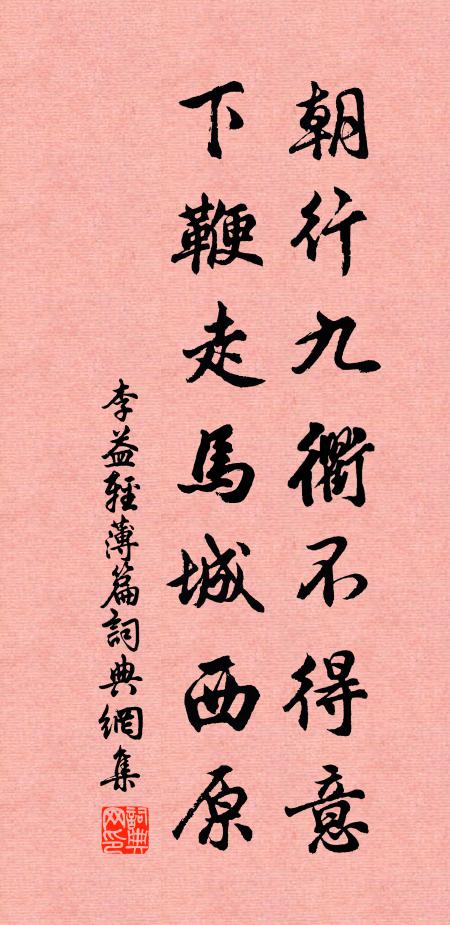 朝行九衢不得意
下鞭走馬城西原
李益輕薄篇詞典網集
詞典網印